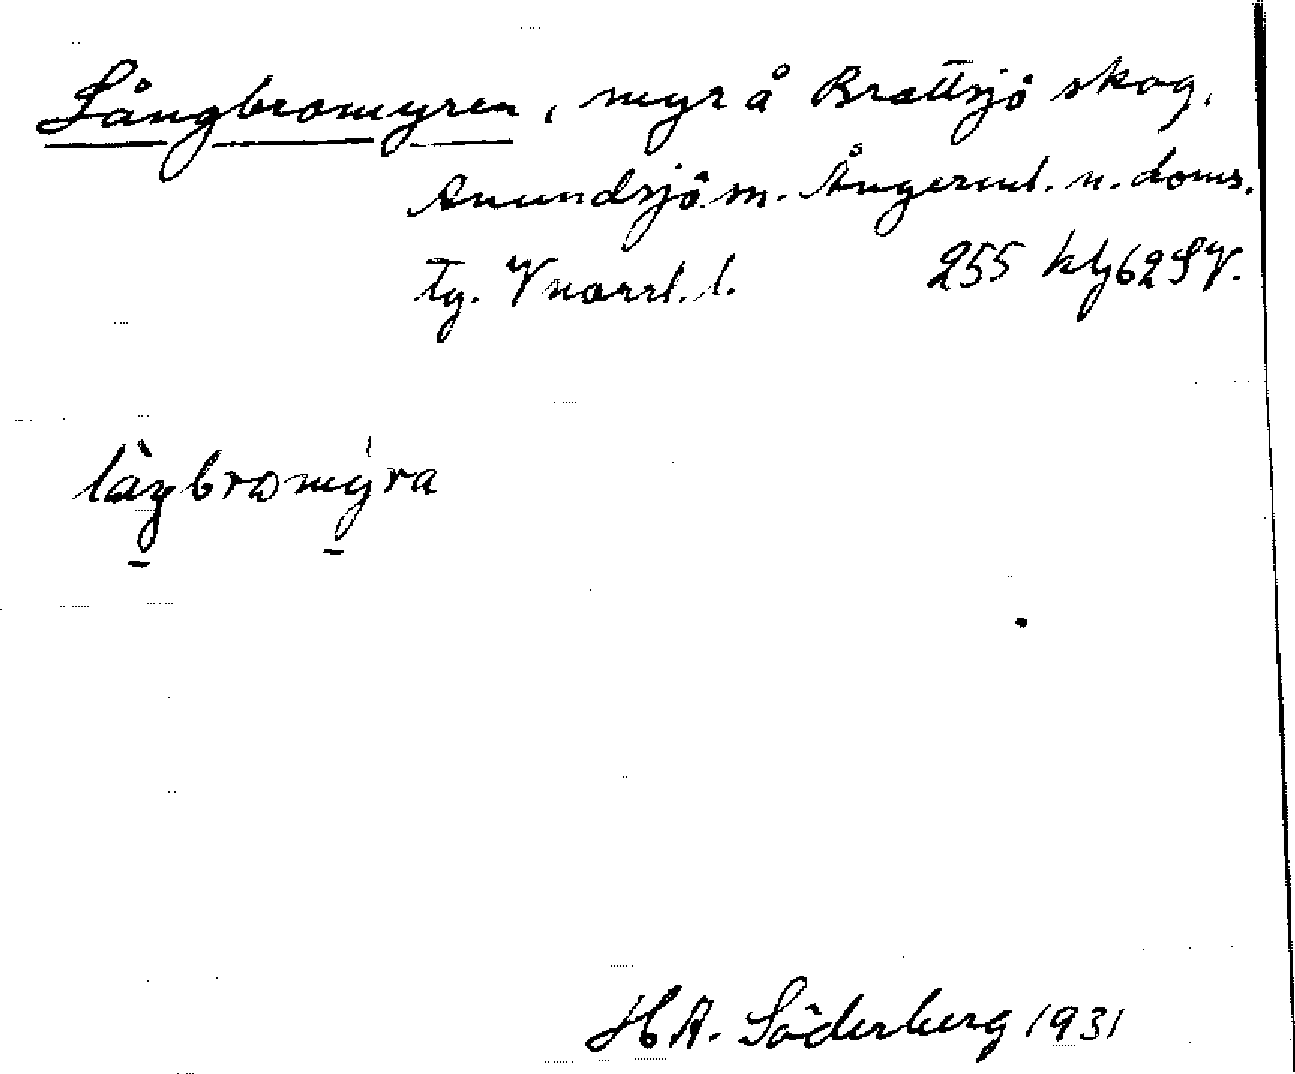 Långbromyren, myr å Brattsjö skog,
Anundsjö sn. Ångerml. n. doms.
tg. V norrl. l. 255 klj 62 SV.
làŋbromýra
H A. Söderberg 1931